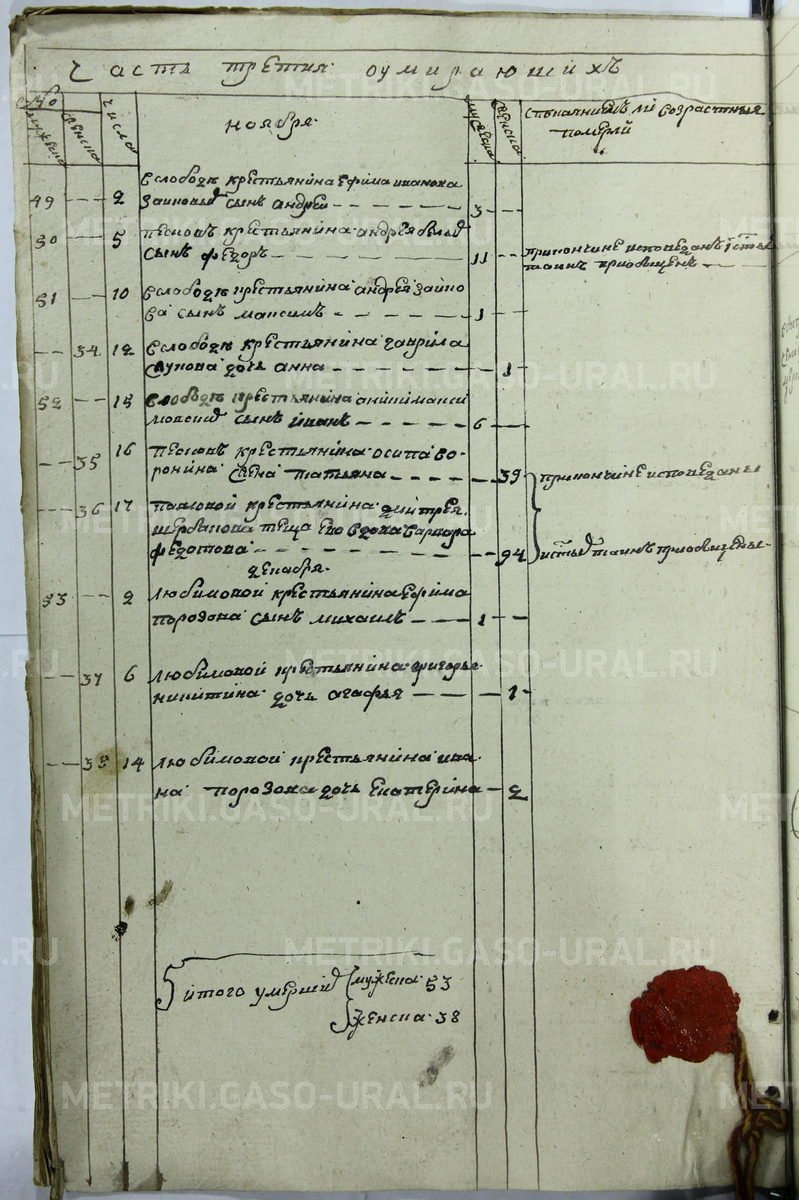 Часть третия оумирающихъ
мужеска
женска
число
ноября
мужеска
женска
с покаяниемъ ли возрастныя
померли
49 — 2 в слободе крестьянина ефима иванова
сынъ андрей — 3 —
50 — 5 песковъ крестьянина андрея
сынъ федоръ — 11 — при кончине исповеданъ
таинъ приобщенъ —
51 — 10 в слободе крестьянина андрея зайко
ва сынъ максимъ — 1 —
— 34 12 в слободе крестьянина гаврила
дочь анна — 1
52 — 15 в слободе крестьянина
сынъ иванъ — 6 —
— 35 16 песковъ крестьянина осипа во
ронина жена татьяна — 39 при кончине исповеданы
— 36 17 крестьянина дмитрея
щербакова теща ево вдова варвара
федотова — 94 и стыхъ таинъ приобщены
декабря
53 — 2 любимовой крестьянина ефима
порозова сынъ михаилъ — 1 —
— 37 6 любимовой крестьянина григорья
никитина дочь агафья — 1
— 38 14 любимовой крестьянина ива
на порозова дочь екатерина — 2
итого умершихъ мужеска 53
женска 38
METRIKI.GASO-URAL.RU